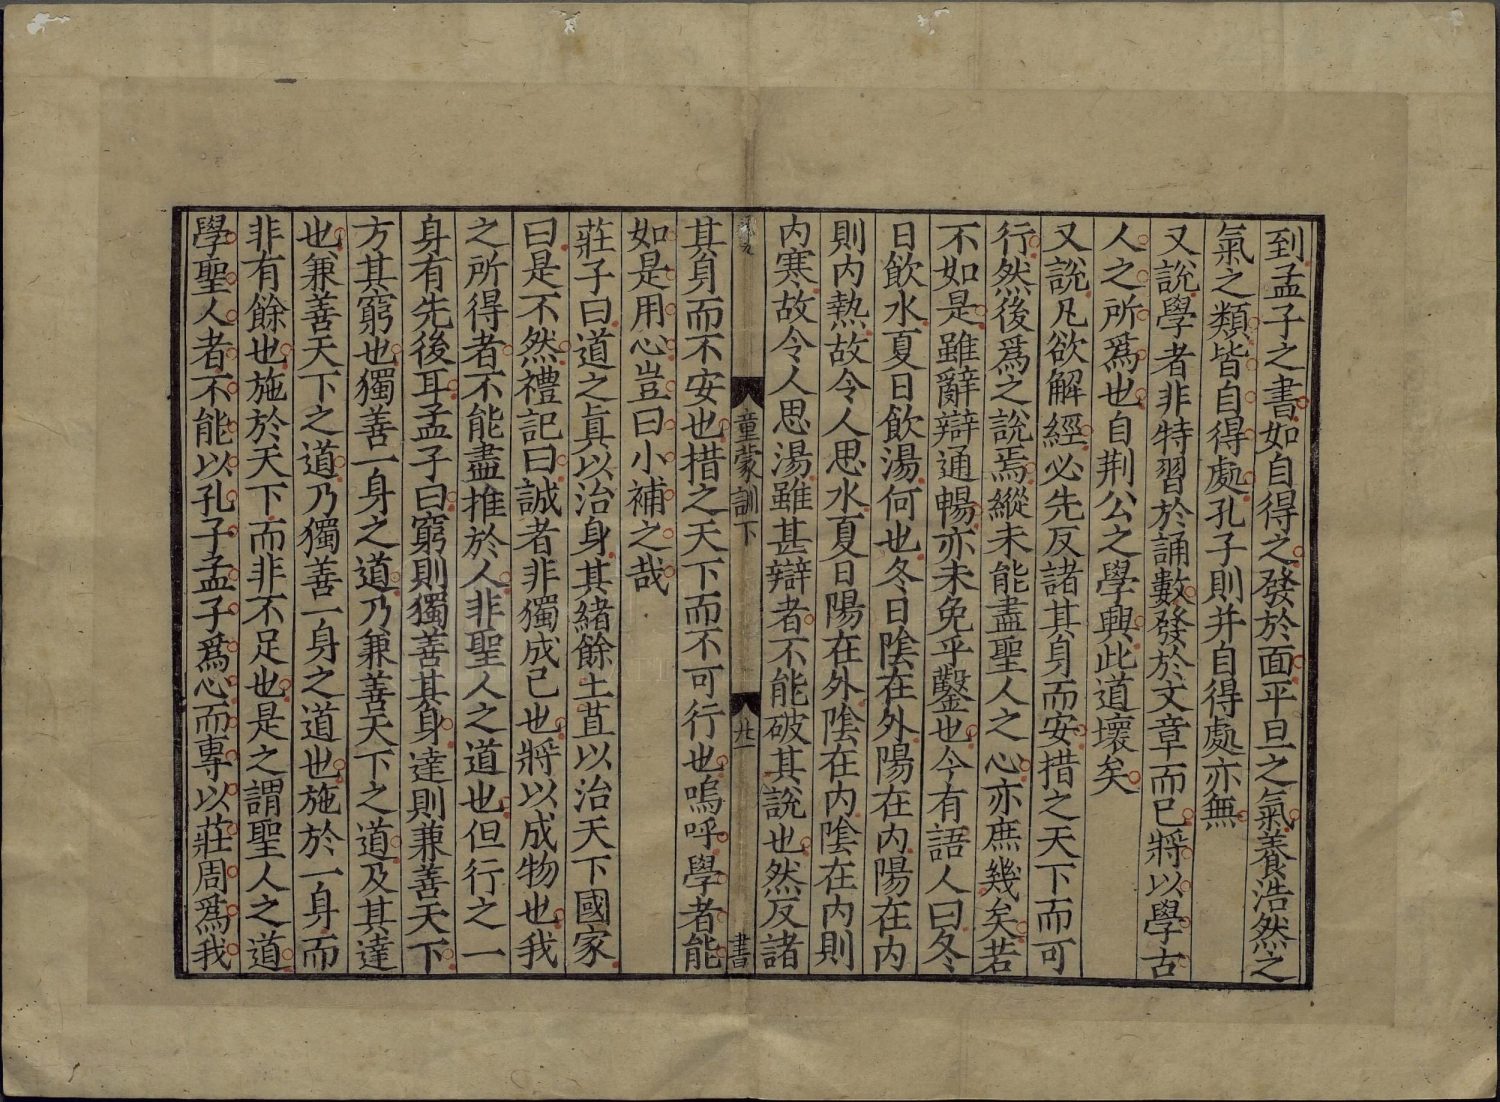 到孟子之書如自得之發於面平旦之氣養浩然之
氣之類皆自得處孔子則并自得處亦無
又說學者非特習於誦數發於文章而已將以學古
人之所爲也自荆公之學興此道壞矣
又說凡欲解經必先反諸其身而安措之天下而可
行然後爲之說焉縱未能盡聖人之心亦庶幾矣若
不如是雖辭辯通暢亦未免乎鑿也今有語人曰冬
日飲水夏日飲湯何也冬日陰在外陽在内陽在内
則内熱故令人思水夏日陽在外陰在内陰在内則
内寒故令人思湯雖甚辯者不能破其說也然反諸
童蒙訓下
廿一
書
其身而不安也措之天下而不可行也嗚呼學者能
如是用心豈曰小補之哉
莊子曰道之眞以治身其緒餘土苴以治天下國家
曰是不然禮記曰誠者非獨成已也將以成物也我
之所得者不能盡推於人非聖人之道也但行之一
身有先後耳孟子曰窮則獨善其身達則兼善天下
方其窮也獨善一身之道乃兼善天下之道及其達
也兼善天下之道乃獨善一身之道也施於一身而
非有餘也施於天下而非不足也是之謂聖人之道
學聖人者不能以孔子孟子爲心而專以莊周爲我